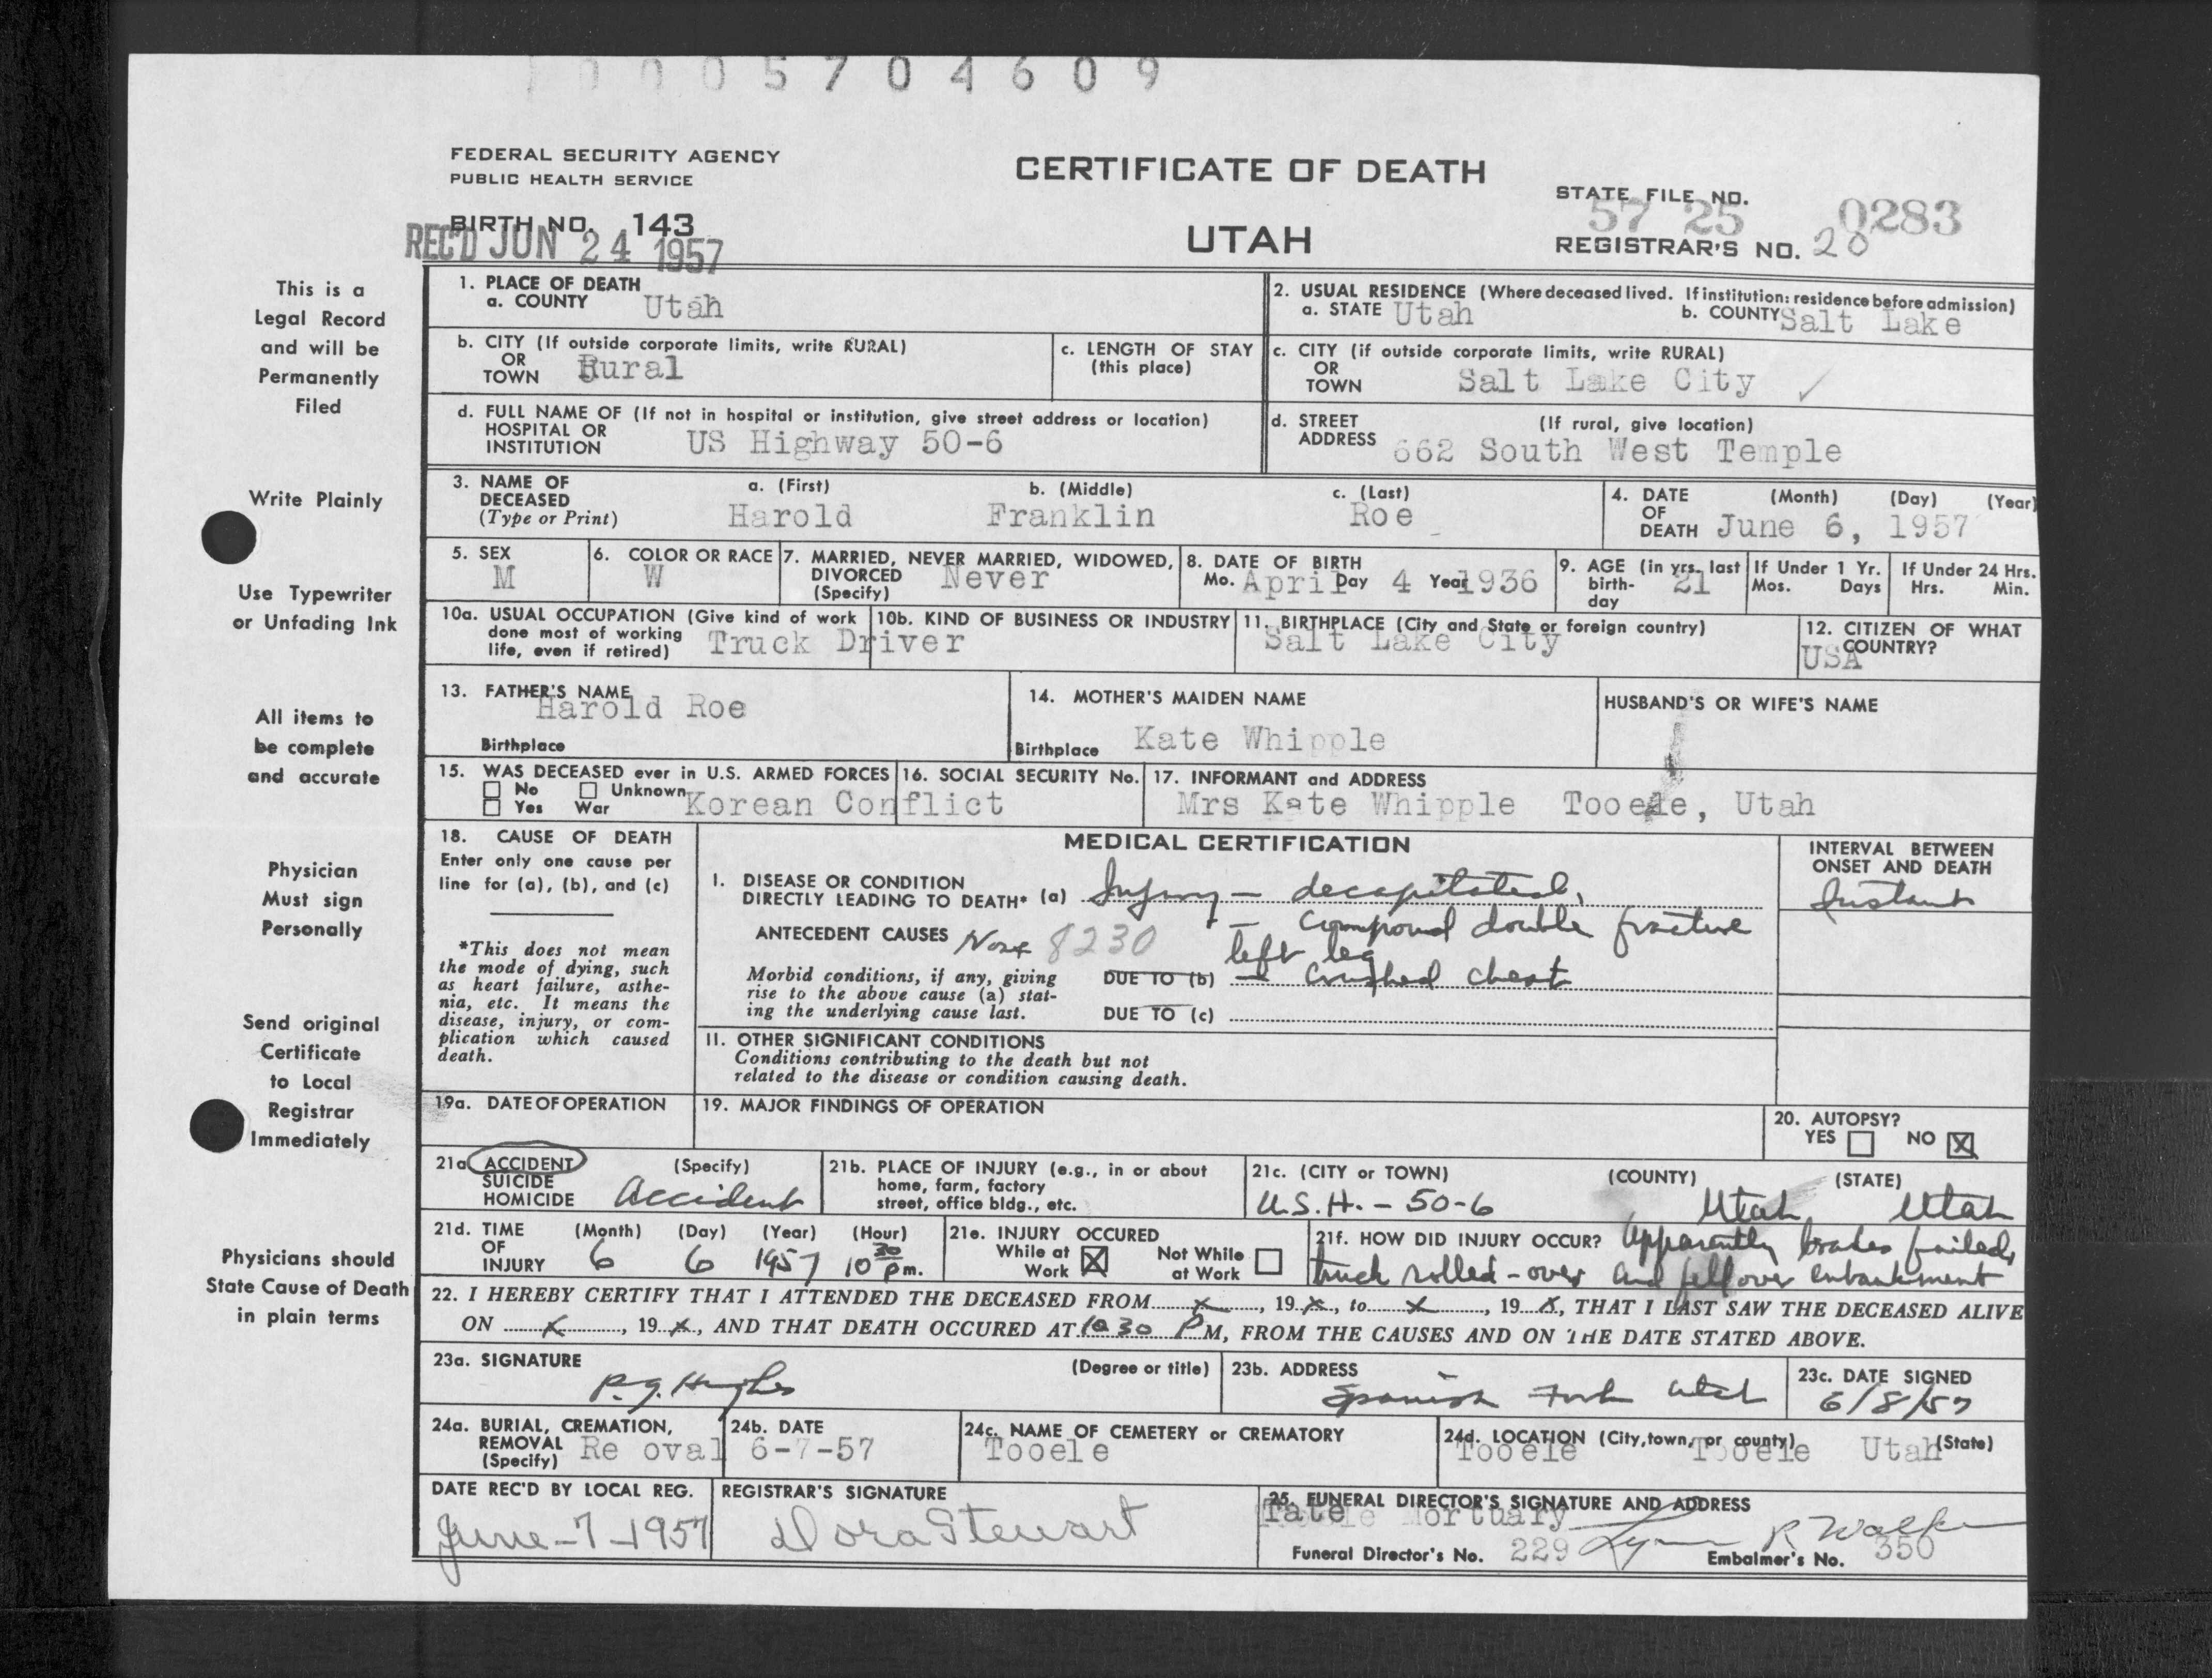 0005704609
FEDERAL SECURITY AGENCY
PUBLIC HEALTH SERVICE
CERTIFICATE OF DEATH
UTAH
BIRTH NO. 143
REC'D JUN 24 1957
STATE FILE NO.
57 25 0283
REGISTRAR'S NO. 20
This is a
Legal Record
and will be
Permanently
Filed
Write Plainly
Use Typewriter
or Unfading Ink
All items to
be complete
and accurate
Physician
Must sign
Personally
Send original
Certificate
to Local
Registrar
Immediately
Physicians should
State Cause of Death
in plain terms
1. PLACE OF DEATH
a. COUNTY Utah
2. USUAL RESIDENCE (Where deceased lived. If institution: residence before admission)
a. STATE Utah b. COUNTY Salt Lake
b. CITY (If outside corporate limits, write RURAL)
OR
TOWN Rural
c. LENGTH OF STAY
(this place)
c. CITY (if outside corporate limits, write RURAL)
OR
TOWN Salt Lake City
d. FULL NAME OF (If not in hospital or institution, give street address or location)
HOSPITAL OR
INSTITUTION US Highway 50-6
d. STREET (If rural, give location)
ADDRESS 662 South West Temple
3. NAME OF
DECEASED
(Type or Print)
a. (First) b. (Middle) c. (Last)
Harold Franklin Roe
4. DATE (Month) (Day) (Year)
OF
DEATH June 6, 1957
5. SEX
M
6. COLOR OR RACE
W
7. MARRIED, NEVER MARRIED, WIDOWED,
DIVORCED Never
(Specify)
8. DATE OF BIRTH
Mo. April Day 4 Year 1936
9. AGE (in yrs. last
birth- 21
day
If Under 1 Yr.
Mos. Days
If Under 24 Hrs.
Hrs. Min.
10a. USUAL OCCUPATION (Give kind of work
done most of working
life, even if retired) Truck Driver
10b. KIND OF BUSINESS OR INDUSTRY
11. BIRTHPLACE (City and State or foreign country)
Salt Lake City
12. CITIZEN OF WHAT
COUNTRY?
USA
13. FATHER'S NAME
Harold Roe
Birthplace
14. MOTHER'S MAIDEN NAME
Birthplace Kate Whipple
HUSBAND'S OR WIFE'S NAME
15. WAS DECEASED ever in U.S. ARMED FORCES
No Unknown
Yes War Korean Conflict
16. SOCIAL SECURITY No.
17. INFORMANT and ADDRESS
Mrs Kate Whipple Tooele, Utah
18. CAUSE OF DEATH
Enter only one cause per
line for (a), (b), and (c)
*This does not mean
the mode of dying, such
as heart failure, asthe-
nia, etc. It means the
disease, injury, or com-
plication which caused
death.
MEDICAL CERTIFICATION
I. DISEASE OR CONDITION
DIRECTLY LEADING TO DEATH* (a) Injury - decapitated,
- compound double fracture
ANTECEDENT CAUSES 8230 left leg
Morbid conditions, if any, giving
rise to the above cause (a) stat-
ing the underlying cause last.
DUE TO (b) - crushed chest
DUE TO (c)
INTERVAL BETWEEN
ONSET AND DEATH
Instant
II. OTHER SIGNIFICANT CONDITIONS
Conditions contributing to the death but not
related to the disease or condition causing death.
19a. DATE OF OPERATION
19. MAJOR FINDINGS OF OPERATION
20. AUTOPSY?
YES NO X
21a. ACCIDENT (Specify)
SUICIDE
HOMICIDE Accident
21b. PLACE OF INJURY (e.g., in or about
home, farm, factory
street, office bldg., etc.
21c. (CITY or TOWN) (COUNTY) (STATE)
U.S.H. - 50-6 Utah Utah
21d. TIME (Month) (Day) (Year) (Hour)
OF
INJURY 6 6 1957 10 30 Pm.
21e. INJURY OCCURED
While at Work X Not While at Work
21f. HOW DID INJURY OCCUR? Apparently brakes failed,
truck rolled-over and fell over embankment
22. I HEREBY CERTIFY THAT I ATTENDED THE DECEASED FROM x, 19 x, to x, 19 x, THAT I LAST SAW THE DECEASED ALIVE
ON x, 19 x, AND THAT DEATH OCCURED AT 10 30 P M, FROM THE CAUSES AND ON THE DATE STATED ABOVE.
23a. SIGNATURE (Degree or title)
P.G. Hughes
23b. ADDRESS
Spanish Fork Utah
23c. DATE SIGNED
6/8/57
24a. BURIAL, CREMATION,
REMOVAL Re oval
(Specify)
24b. DATE
6-7-57
24c. NAME OF CEMETERY or CREMATORY
Tooele
24d. LOCATION (City, town, or county) (State)
Tooele Tooele Utah
DATE REC'D BY LOCAL REG.
June-7-1957
REGISTRAR'S SIGNATURE
Dora Stewart
25. FUNERAL DIRECTOR'S SIGNATURE AND ADDRESS
Tate Mortuary
Lynn R Walker
Funeral Director's No. 229
Embalmer's No. 350